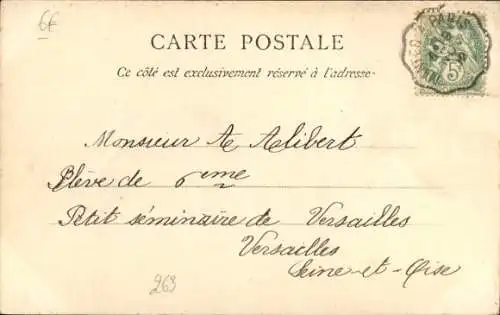 6€
CARTE POSTALE
Ce côté est exclusivement réservé à l'adresse.
PARIS
5
Monsieur A Alibert
Elève de 6eme
Petit séminaire de Versailles
Versailles
Seine-et-Oise
263